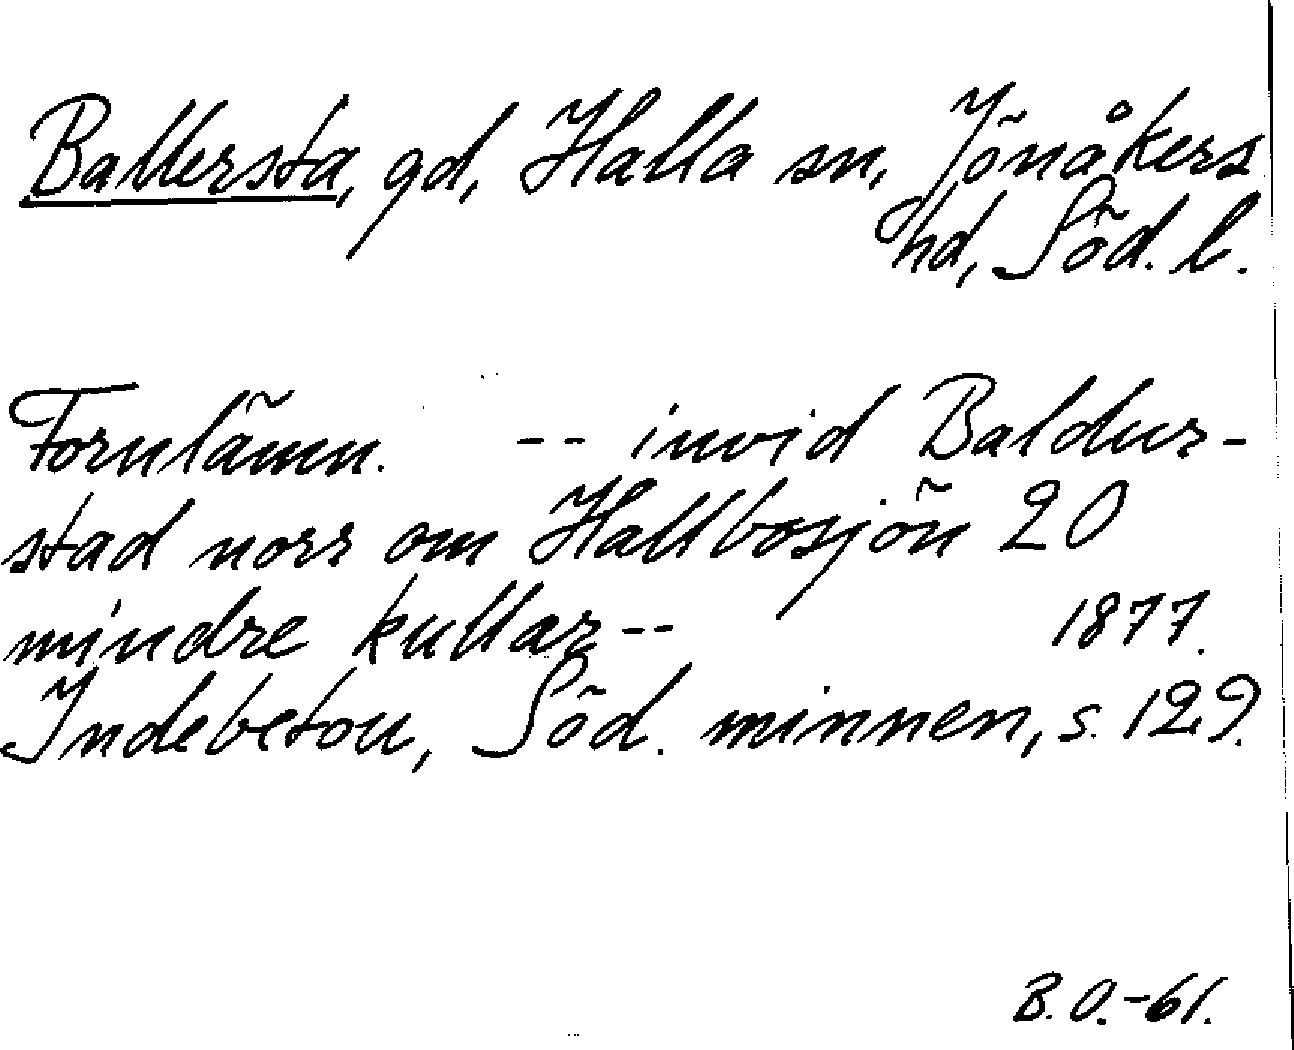 Ballersta, gd, Halla sn, Jönåkers
hd, Söd. l.
Fornlämn. -- invid Baldur-
stad norr om Hallbosjön 20
mindre kullar--
1877.
Indebetou, Söd. minnen, s. 129.
B.O.-61.